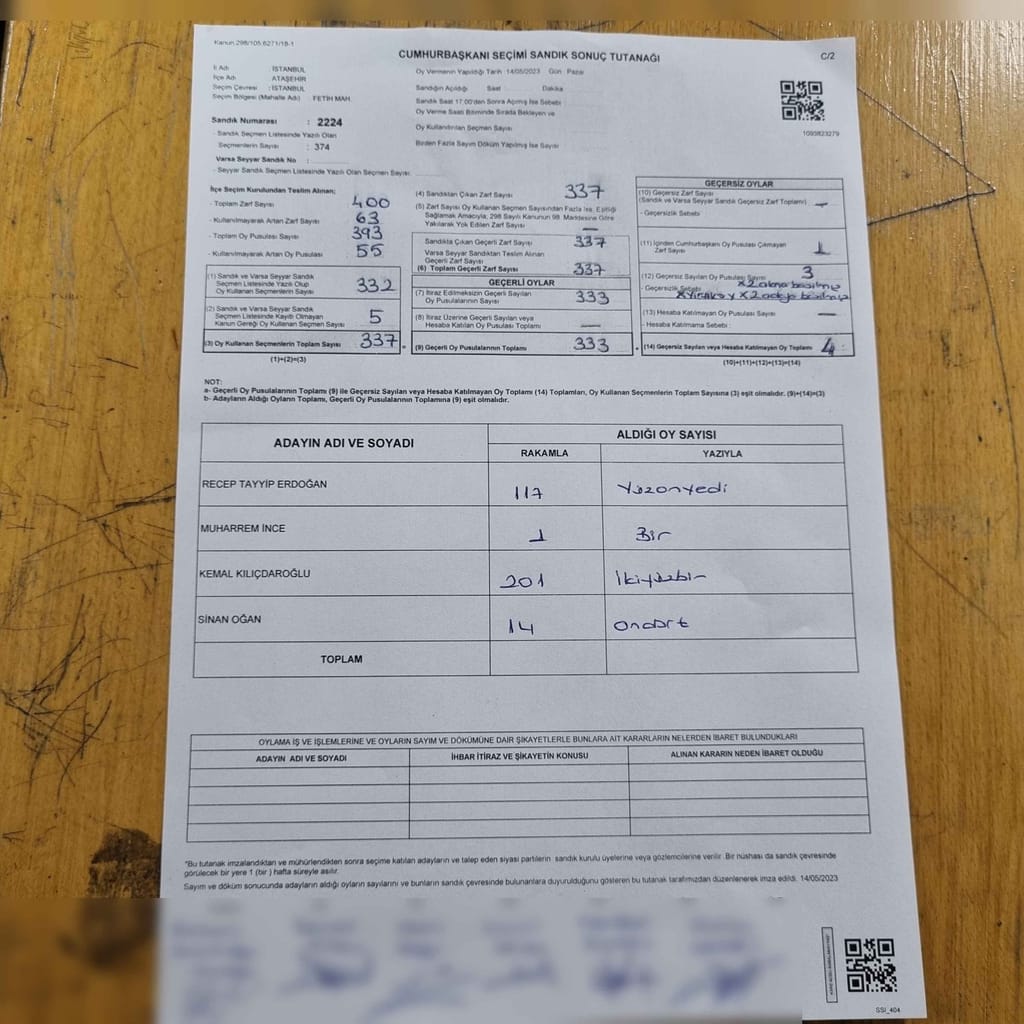 Kanun 298/105 6271/18-1
CUMHURBAŞKANI SEÇİMİ SANDIK SONUÇ TUTANAĞI
C/2
İl Adı : İSTANBUL
İlçe Adı : ATAŞEHİR
Seçim Çevresi : İSTANBUL
Seçim Bölgesi (Mahalle Adı) : FETİH MAH.
Sandık Numarası : 2224
- Sandık Seçmen Listesinde Yazılı Olan
Seçmenlerin Sayısı : 374
Varsa Seyyar Sandık No :
- Seyyar Sandık Seçmen Listesinde Yazılı Olan Seçmen Sayısı:
Oy Vermenin Yapıldığı Tarih :14/05/2023 Gün : Pazar
Sandığın Açıldığı Saat Dakika
Sandık Saat 17:00'den Sonra Açılmış İse Sebebi
Oy Verme Saati Bitiminde Sırada Bekleyen ve
Oy Kullandırılan Seçmen Sayısı
Birden Fazla Sayım Döküm Yapılmış İse Sayısı
1093823279
İlçe Seçim Kurulundan Teslim Alınan;
- Toplam Zarf Sayısı 400
- Kullanılmayarak Artan Zarf Sayısı 63
- Toplam Oy Pusulası Sayısı 393
- Kullanılmayarak Artan Oy Pusulası 55
(1) Sandık ve Varsa Seyyar Sandık
Seçmen Listesinde Yazılı Olup
Oy Kullanan Seçmenlerin Sayısı 332
(2) Sandık ve Varsa Seyyar Sandık
Seçmen Listesinde Kayıtlı Olmayan
Kanun Gereği Oy Kullanan Seçmen Sayısı 5
(3) Oy Kullanan Seçmenlerin Toplam Sayısı 337
(1)+(2)=(3)
(4) Sandıktan Çıkan Zarf Sayısı 337
(5) Zarf Sayısı Oy Kullanan Seçmen Sayısından Fazla İse, Eşitliği
Sağlamak Amacıyla; 298 Sayılı Kanunun 98. Maddesine Göre
Yakılarak Yok Edilen Zarf Sayısı —
Sandıkta Çıkan Geçerli Zarf Sayısı 337
Varsa Seyyar Sandıktan Teslim Alınan
Geçerli Zarf Sayısı
(6) Toplam Geçerli Zarf Sayısı 337
GEÇERLİ OYLAR
(7) İtiraz Edilmeksizin Geçerli Sayılan
Oy Pusulalarının Sayısı 333
(8) İtiraz Üzerine Geçerli Sayılan veya
Hesaba Katılan Oy Pusulası Toplamı —
(9) Geçerli Oy Pusulalarının Toplamı 333
GEÇERSİZ OYLAR
(10) Geçersiz Zarf Sayısı
(Sandık ve Varsa Seyyar Sandık Geçersiz Zarf Toplamı) —
- Geçersizlik Sebebi
(11) İçinden Cumhurbaşkanı Oy Pusulası Çıkmayan
Zarf Sayısı 1
(12) Geçersiz Sayılan Oy Pusulası Sayısı 3
- Geçersizlik Sebebi
(13) Hesaba Katılmayan Oy Pusulası Sayısı —
- Hesaba Katılmama Sebebi :
(14) Geçersiz Sayılan veya Hesaba Katılmayan Oy Toplamı 4
(10)+(11)+(12)+(13)=(14)
NOT:
a- Geçerli Oy Pusulalarının Toplamı (9) ile Geçersiz Sayılan veya Hesaba Katılmayan Oy Toplamı (14) Toplamları, Oy Kullanan Seçmenlerin Toplam Sayısına (3) eşit olmalıdır. (9)+(14)=(3)
b- Adayların Aldığı Oyların Toplamı, Geçerli Oy Pusulalarının Toplamına (9) eşit olmalıdır.
ADAYIN ADI VE SOYADI
ALDIĞI OY SAYISI
RAKAMLA YAZIYLA
RECEP TAYYİP ERDOĞAN 117 Yüzonyedi
MUHARREM İNCE 1 Bir
KEMAL KILIÇDAROĞLU 201 İkiyüzbir
SİNAN OĞAN 14 ondört
TOPLAM
OYLAMA İŞ VE İŞLEMLERİNE VE OYLARIN SAYIM VE DÖKÜMÜNE DAİR ŞİKAYETLERLE BUNLARA AİT KARARLARIN NELERDEN İBARET BULUNDUKLARI
ADAYIN ADI VE SOYADI İHBAR İTİRAZ VE ŞİKAYETİN KONUSU ALINAN KARARIN NEDEN İBARET OLDUĞU
*Bu tutanak imzalandıktan ve mühürlendikten sonra seçime katılan adayların ve talep eden siyasi partilerin sandık kurulu üyelerine veya gözlemcilerine verilir. Bir nüshası da sandık çevresinde
görülecek bir yere 1 (bir ) hafta süreyle asılır.
Sayım ve döküm sonucunda adayların aldığı oyların sayılarını ve bunların sandık çevresinde bulunanlara duyurulduğunu gösteren bu tutanak tarafımızdan düzenlenerek imza edildi. 14/05/2023
SSI_404